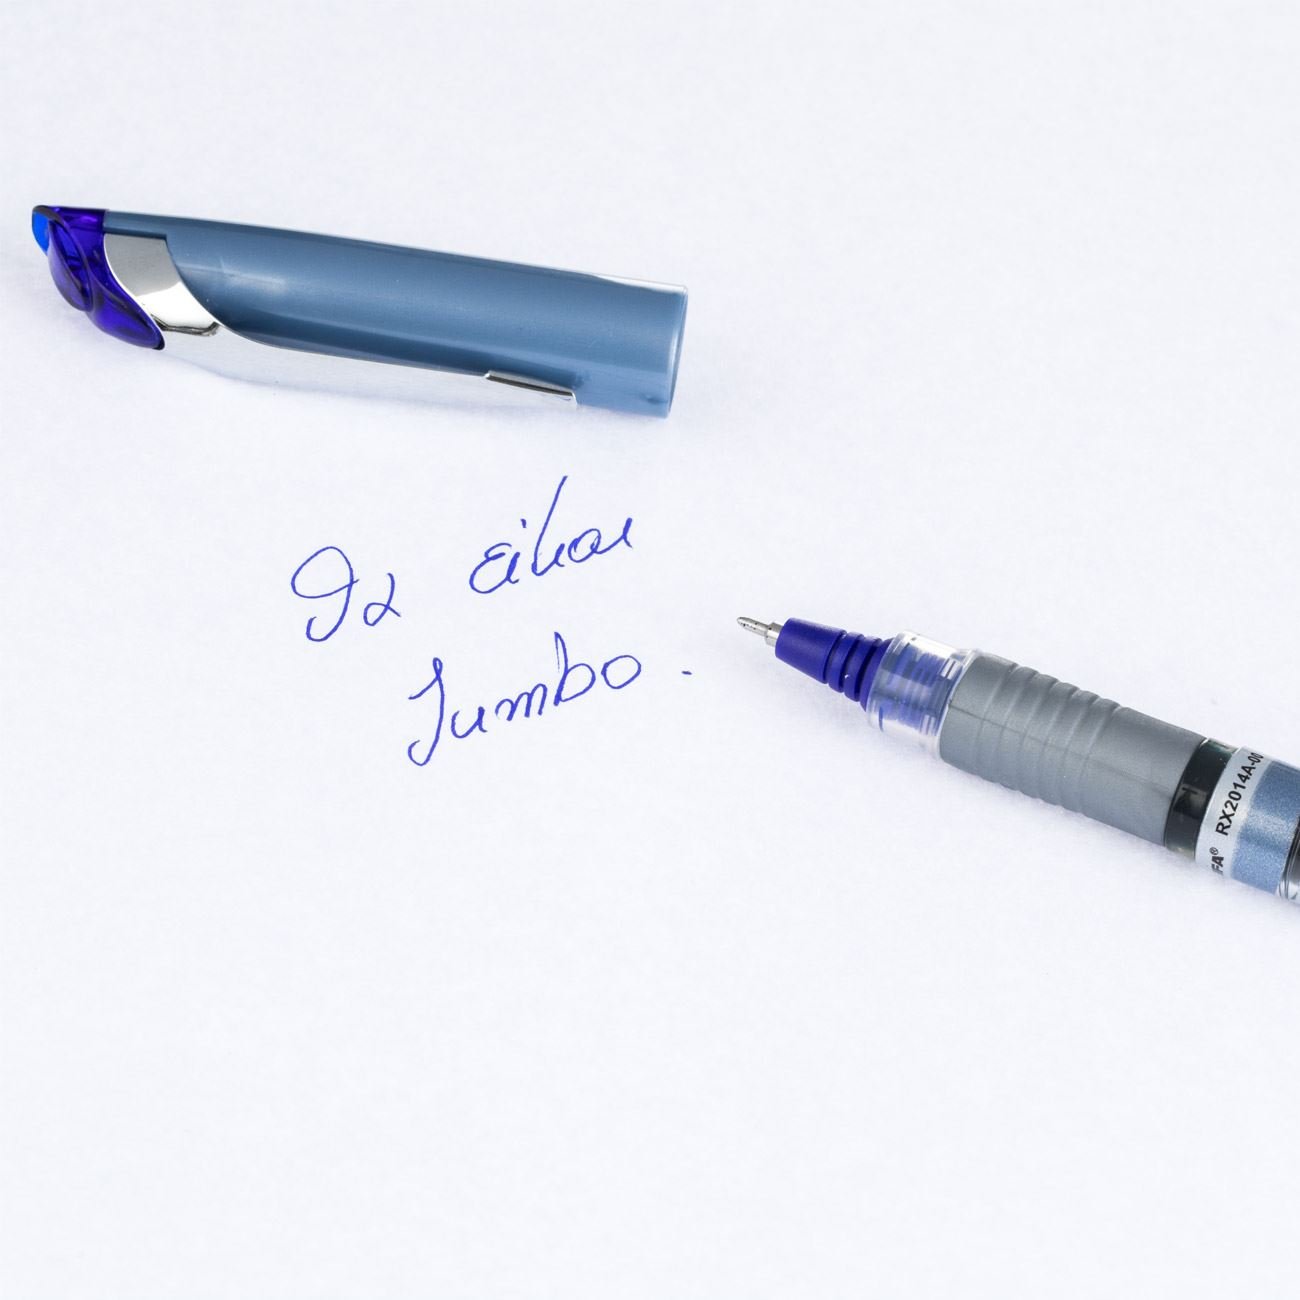 θα είναι
Jumbo.
FA® RX2014A-00